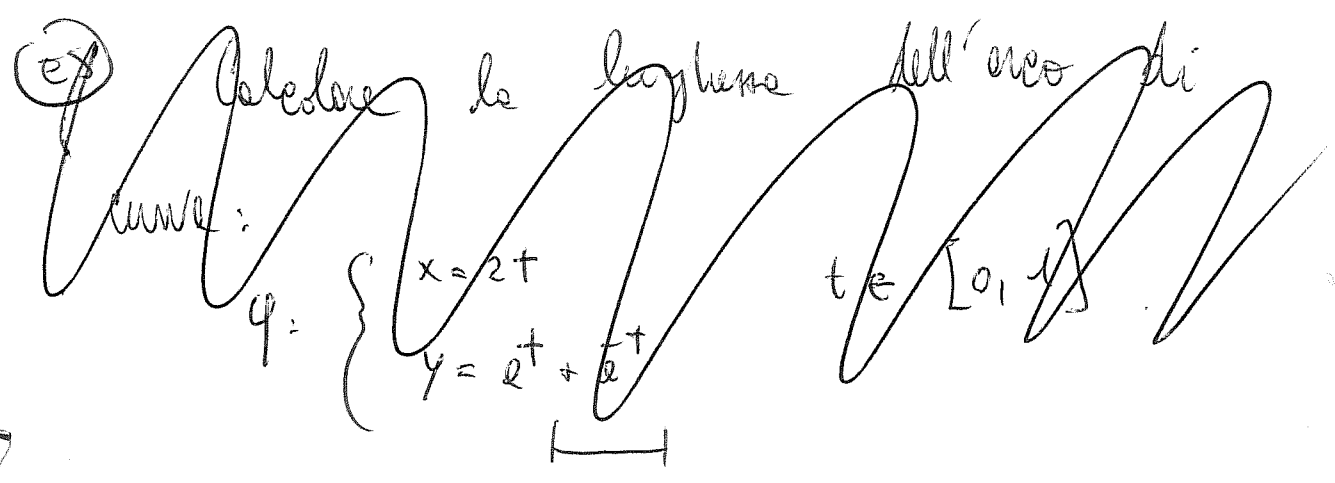 es Calcolare la lunghezza dell'arco di
curva:
φ: { x = 2t t ∈ [0, 1].
y = e^t + e^-t